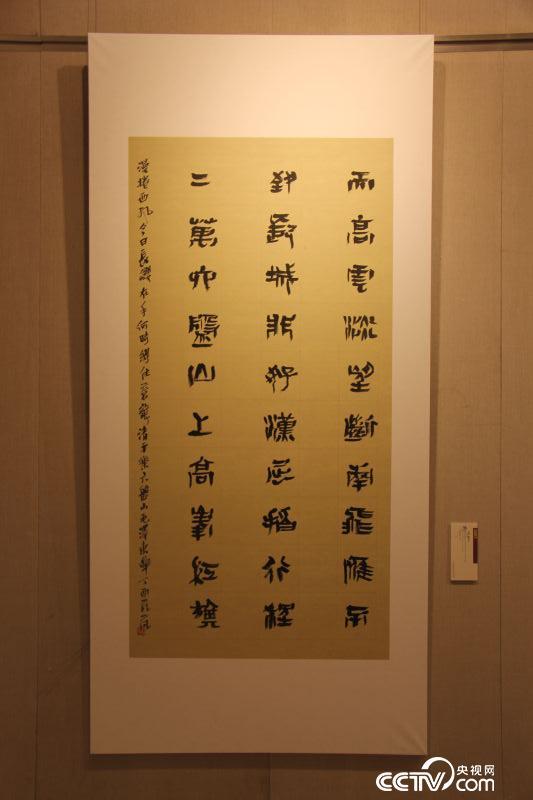 天高雲淡望斷南飛雁不
到長城非好漢屈指行程
二萬六盤山上高峰紅旗
漫捲西風今日長纓在手何時縛住蒼龍清平樂六盤山毛澤東詞丁酉
CCTV.com 央视网